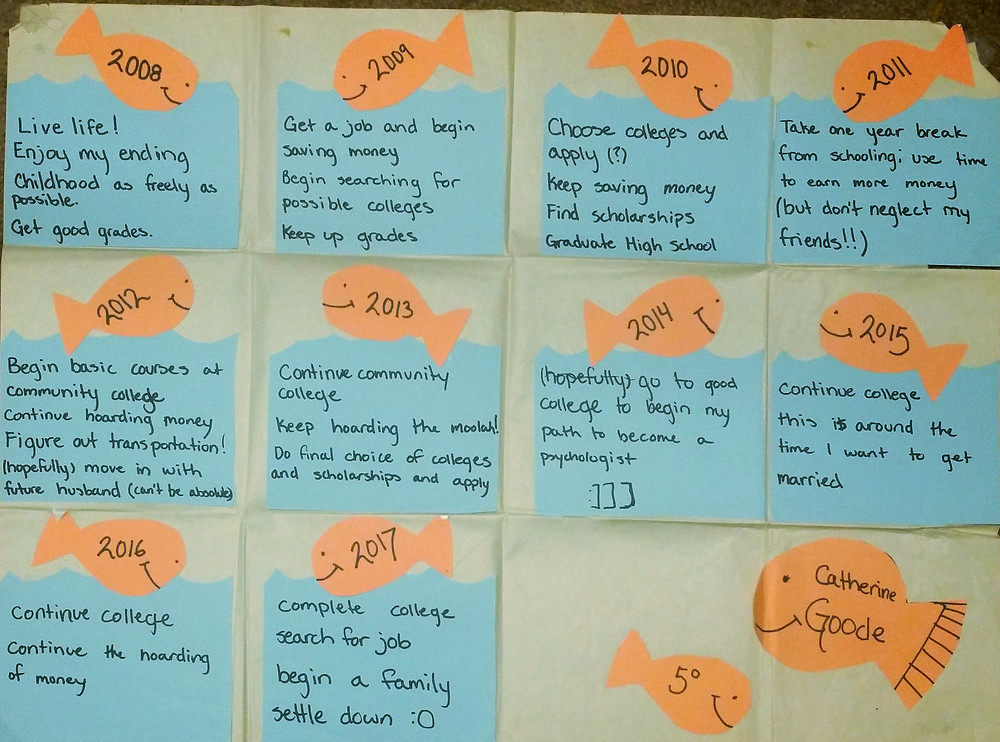 2008
Live life!
Enjoy my ending
Childhood as freely as
possible.
Get good grades.
2009
Get a job and begin
saving money
Begin searching for
possible colleges
Keep up grades
2010
Choose colleges and
apply (?)
Keep saving money
Find scholarships
Graduate High school
2011
Take one year break
from schooling; use time
to earn more money
(but don't neglect my
friends!!)
2012
Begin basic courses at
community college
Continue hoarding money
Figure out transportation!
(hopefully) move in with
future husband (can't be absolute)
2013
Continue community
college
Keep hoarding the moolah!
Do final choice of colleges
and scholarships and apply
2014
(hopefully) go to good
college to begin my
path to become a
psychologist
:]]]
2015
Continue college
this is around the
time I want to get
married
2016
Continue college
Continue the hoarding
of money
2017
Complete college
search for job
begin a family
settle down :O
5°
Catherine
Goode